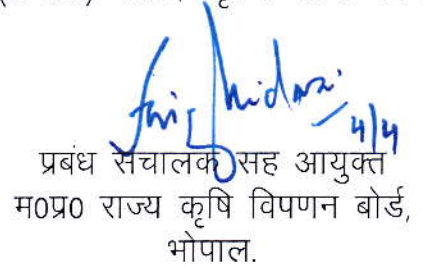 4/4
प्रबंध संचालक सह आयुक्त
म0प्र0 राज्य कृषि विपणन बोर्ड,
भोपाल.